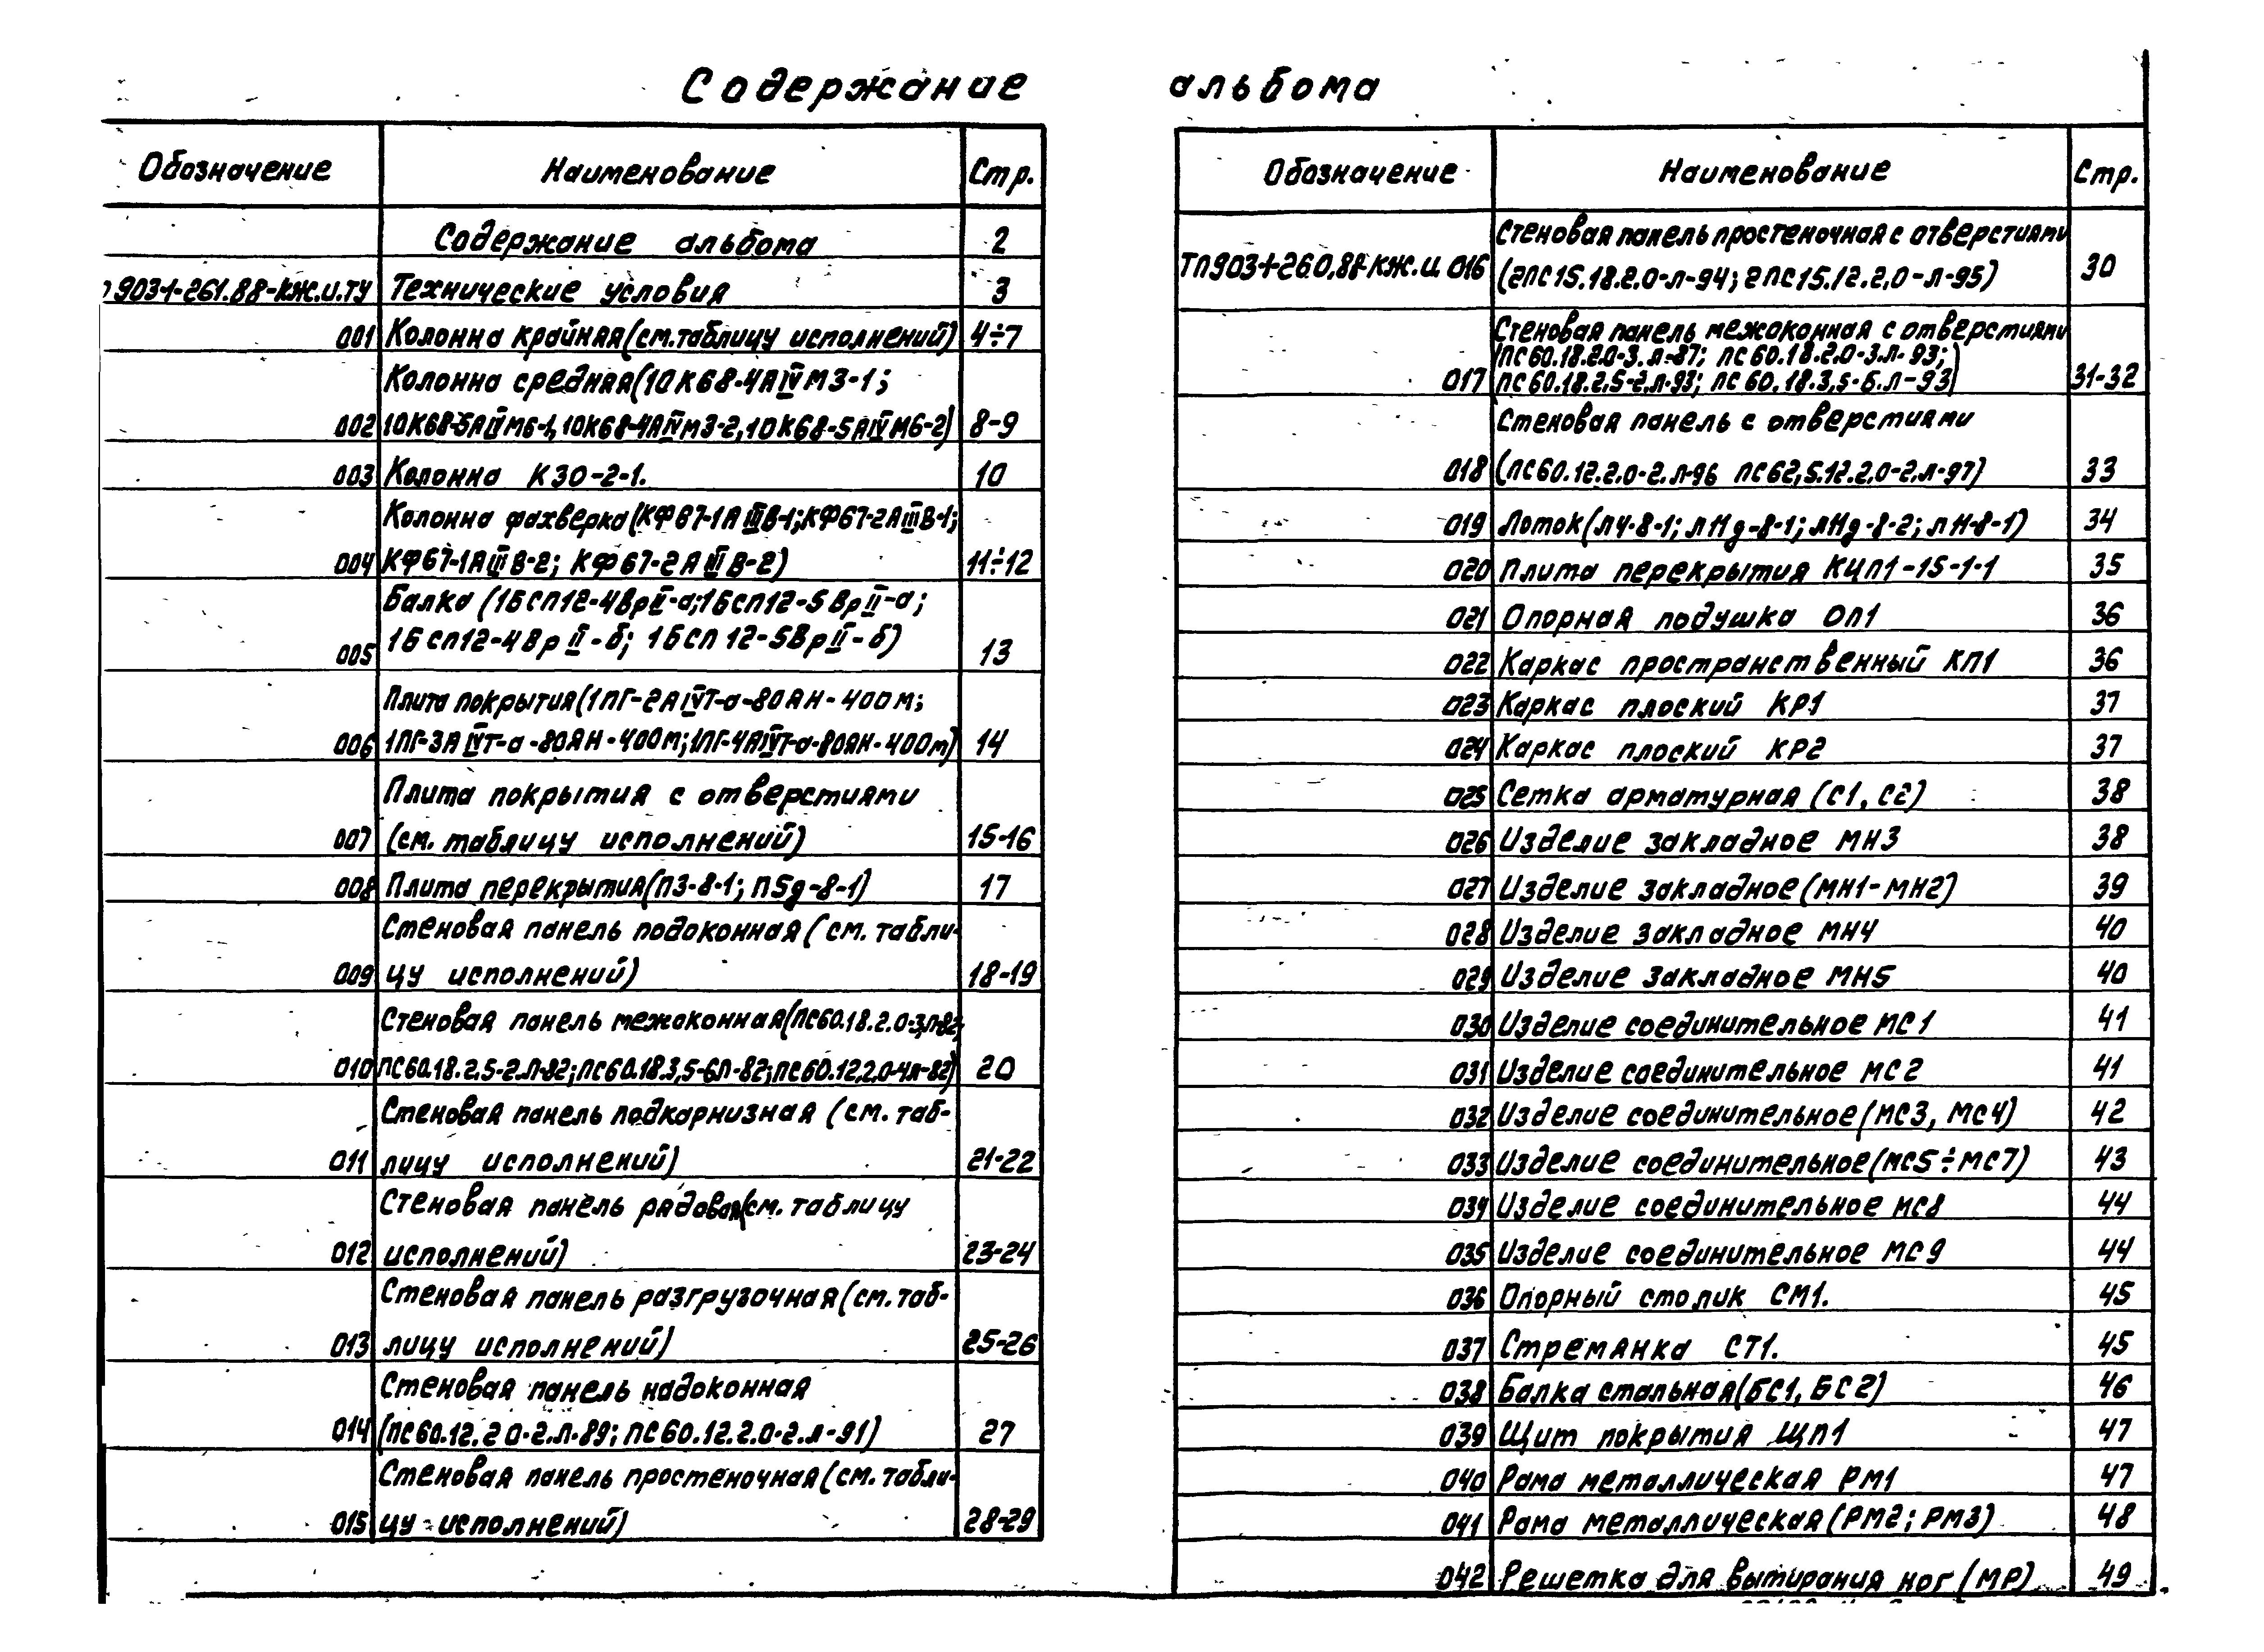 Содержание альбома
Обозначение Наименование Стр.
Содержание альбома 2
903-1-261.88-КЖ.И.ТУ Технические условия 3
001 Колонна крайняя (см. таблицу исполнений) 4÷7
Колонна средняя (10К68-4АIVМ3-1;
002 10К68-5АIVМ6-1, 10К68-4АIVМ3-2, 10К68-5АIVМ6-2) 8-9
003 Колонна К30-2-1. 10
Колонна фахверка (КФ67-1АIIIВ-1; КФ67-2АIIIВ-1;
004 КФ67-1АIIIВ-2; КФ67-2АIIIВ-2) 11÷12
Балка (1БСП12-4ВрII-а; 1БСП12-5ВрII-а;
005 1БСП12-4ВрII-б; 1БСП12-5ВрII-б) 13
Плита покрытия (1ПГ-2АIVТ-а-80АН-400м;
006 1ПГ-3АIVТ-а-80АН-400м; 1ПГ-4АIVТ-а-80АН-400м) 14
Плита покрытия с отверстиями
007 (см. таблицу исполнений) 15-16
008 Плита перекрытия (П3-8-1; П5д-8-1) 17
Стеновая панель подоконная (см. табли-
009 цу исполнений) 18-19
Стеновая панель межоконная (ПС60.18.2.0-3.Л-82;
010 ПС60.18.2,5-2.Л-82; ПС60.18.3,5-6Л-82; ПС60.12.2.0-4Л-82) 20
Стеновая панель подкарнизная (см. таб-
011 лицу исполнений) 21-22
Стеновая панель рядовая (см. таблицу
012 исполнений) 23-24
Стеновая панель разгрузочная (см. таб-
013 лицу исполнений) 25-26
Стеновая панель надоконная
014 (ПС60.12.2.0-2.Л-89; ПС60.12.2.0-2.Л-91) 27
Стеновая панель простеночная (см. табли-
015 цу исполнений) 28-29
Обозначение Наименование Стр.
Стеновая панель простеночная с отверстиями
ТП903-1-260.88-КЖ.И. 016 (2ПС15.18.2.0-Л-94; 2ПС15.12.2,0-Л-95) 30
Стеновая панель межоконная с отверстиями
(ПС60.18.2.0-3.Л-87; ПС60.18.2.0-3.Л-93;
017 ПС60.18.2,5-2.Л-93; ПС60.18.3,5-6.Л-93) 31-32
Стеновая панель с отверстиями
018 (ПС60.12.2.0-2.Л-96 ПС62,5.12.2.0-2.Л-97) 33
019 Лоток (ЛЧ-8-1; ЛНд-8-1; ЛНд-8-2; ЛН-8-1) 34
020 Плита перекрытия КЦП1-15-1-1 35
021 Опорная подушка ОП1 36
022 Каркас пространственный КП1 36
023 Каркас плоский КР1 37
024 Каркас плоский КР2 37
025 Сетка арматурная (С1, С2) 38
026 Изделие закладное МН3 38
027 Изделие закладное (МН1-МН2) 39
028 Изделие закладное МН4 40
029 Изделие закладное МН5 40
030 Изделие соединительное МС1 41
031 Изделие соединительное МС2 41
032 Изделие соединительное (МС3, МС4) 42
033 Изделие соединительное (МС5÷МС7) 43
034 Изделие соединительное МС8 44
035 Изделие соединительное МС9 44
036 Опорный столик СМ1. 45
037 Стремянка СТ1. 45
038 Балка стальная (БС1, БС2) 46
039 Щит покрытия ЩП1 47
040 Рама металлическая РМ1 47
041 Рама металлическая (РМ2; РМ3) 48
042 Решетка для вытирания ног (МР) 49